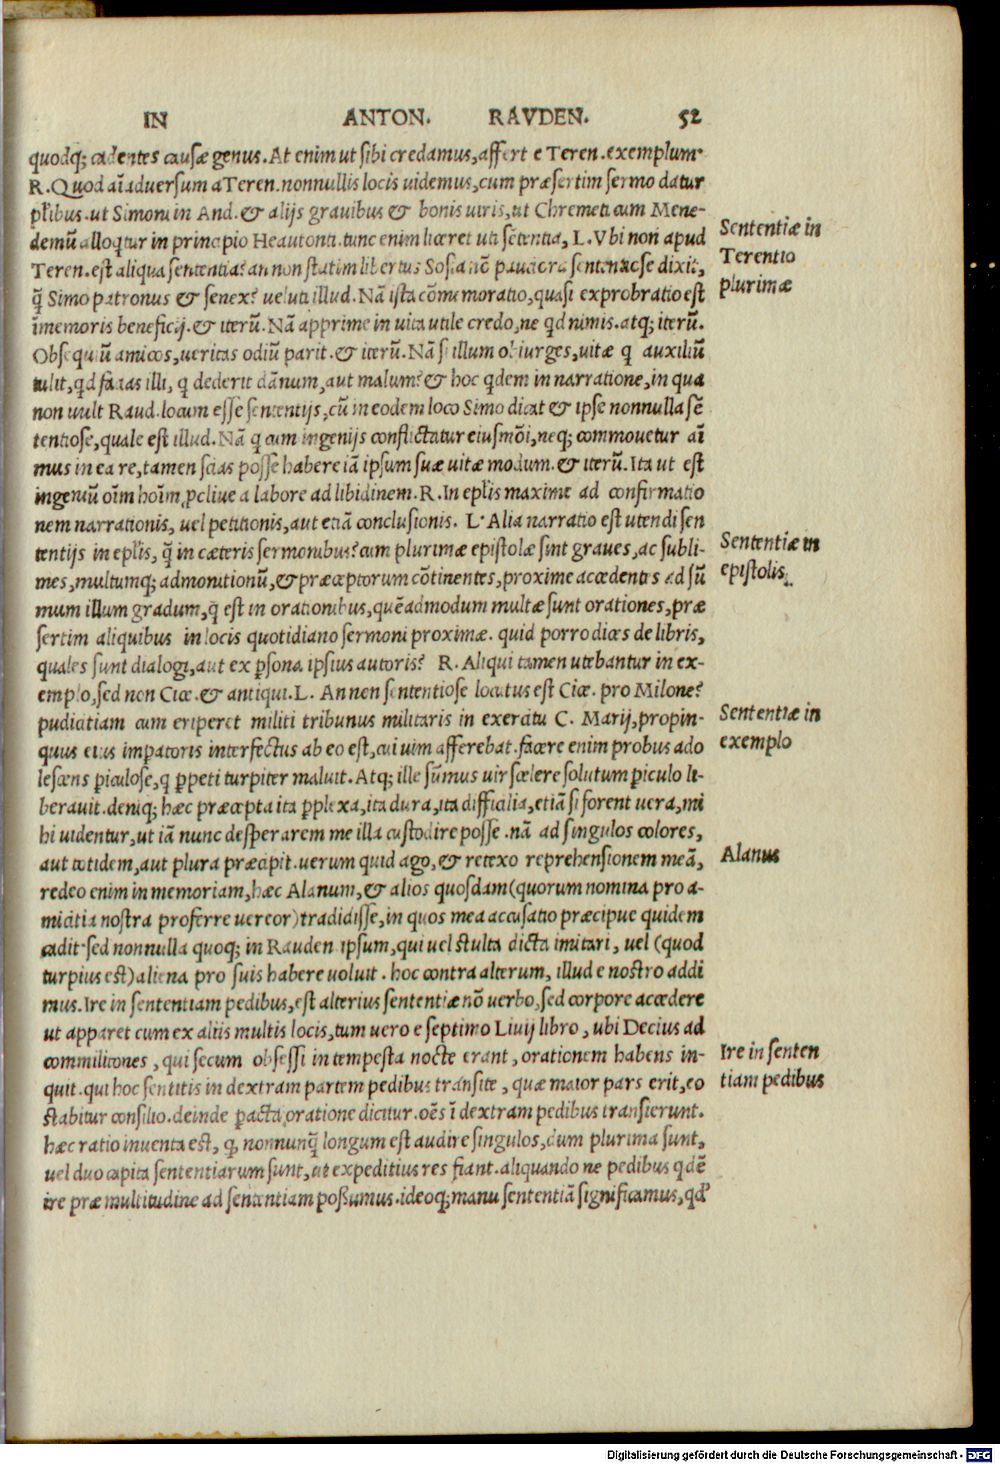 IN ANTON. RAVDEN. 52
quodq; cadentes causæ genus. At enim ut sibi credamus, affert e Teren. exemplum.
R. Quod aĩaduersum a Teren. nonnullis locis uidemus, cum præsertim sermo datur
pl̃ibus. ut Simoni in And. & alijs grauibus & bonis uiris, ut Chremeti cum Mene-
demũ alloqtur in principio Heautonti. tunc enim liceret uti sẽtentia, L. Vbi non apud
Teren. est aliqua sententia? an non statim libertus Sosia nõ pauciora sententiæ se dixit,
q̃ Simo patronus & senex? ueluti illud. Nã ista cõmemoratio, quasi exprobratio est
ĩmemoris beneficij. & iterũ. Nã apprime in uita utile credo, ne qd nimis. atq; iterũ.
Obsequiũ amicos, ueritas odiũ parit. & iterũ. Nã si illum obiurges, uitæ q auxiliũ
tulit, qd facias illi, q dederit dãnum, aut malum? & hoc qdem in narratione, in qua
non uult Raud. locum esse sententijs, cũ in eodem loco Simo dicat & ipse nonnulla sẽ
tentiose, quale est illud. Nã q cum ingenijs conflictatur eiusmõi, neq; commouetur aĩ
mus in ea re, tamen scias posse habere iã ipsum suæ uitæ modum. & iterũ. Ita ut est
ingeniũ oĩm hoĩm ꝓcliue a labore ad libidinem. R. In epl̃is maxime ad confirmatio
nem narrationis, uel petitionis, aut etiã conclusionis. L. Alia narratio est utendi sen
tentijs in epl̃is, q̃ in cæteris sermonibus? cum plurimæ epistolæ sint graues, ac subli-
mes, multumq; admonitionũ, & præceptorum cõtinentes, proxime accedentes ad sũ
mum illum gradum, q̃ est in orationibus, quẽadmodum multæ sunt orationes, præ
sertim aliquibus in locis quotidiano sermoni proximæ. quid porro dices de libris,
quales sunt dialogi, aut ex ꝑsona ipsius autoris? R. Aliqui tamen utebantur in ex-
emplo, sed non Cice. & antiqui. L. An non sententiose locutus est Cice. pro Milone?
pudicitiam cum eriperet militi tribunus militaris in exercitu C. Marij, propin-
quus eius imꝑatoris interfectus ab eo est, cui uim afferebat. facere enim probus ado
lescens ꝑiculose, q ꝑpeti turpiter maluit. Atq; ille sũmus uir scelere solutum ꝑiculo li-
berauit. deniq; hæc præcepta ita ꝑplexa, ita dura, ita difficilia, etiã si forent uera, mi
hi uidentur, ut iã nunc desperarem me illa custodire posse. nã ad singulos colores,
aut totidem, aut plura præcipit. uerum quid ago, & retexo reprehensionem meã,
redeo enim in memoriam, hæc Alanum, & alios quosdam (quorum nomina pro a-
micitia nostra proferre uereor) tradidisse, in quos mea accusatio præcipue quidem
cadit. sed nonnulla quoq; in Rauden ipsum, qui uel stulta dicta imitari, uel (quod
turpius est) aliena pro suis habere uoluit. hoc contra alterum, illud e nostro addi
mus. Ire in sententiam pedibus, est alterius sententiæ nõ uerbo, sed corpore accedere
ut apparet cum ex aliis multis locis, tum uero e septimo Liuij libro, ubi Decius ad
commilitones, qui secum obsessi intempesta nocte erant, orationem habens in-
quit. qui hoc sentitis in dextram partem pedibus transite, quæ maior pars erit, eo
stabitur consilio. deinde ꝑacta oratione dicitur. oẽs ĩ dextram pedibus transierunt.
hæc ratio inuenta est, q, nonnunq̃ longum est audire singulos, cum plurima sunt,
uel duo capita sententiarum sunt, ut expeditius res fiant. aliquando ne pedibus qdẽ
ire præ multitudine ad sententiam possumus. ideoq; manu sententiã significamus, qd'
Sententiæ in
Terentio
plurimæ
Sententiæ in
epistolis.
Sententiæ in
exemplo
Alanus
Ire in senten
tiam pedibus
Digitalisierung gefördert durch die Deutsche Forschungsgemeinschaft - DFG